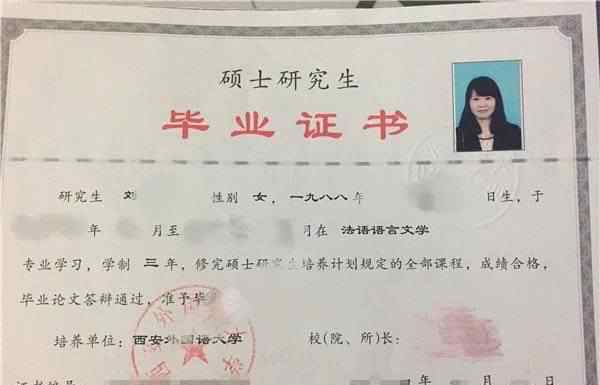 硕士研究生
毕业证书
研究生 刘 性别 女，一九八八年 日生，于
年 月至 月在 法语语言文学
专业学习，学制 三 年，修完硕士研究生培养计划规定的全部课程，成绩合格，
毕业论文答辩通过，准予毕
培养单位：西安外国语大学 校(院、所)长：
证书编号